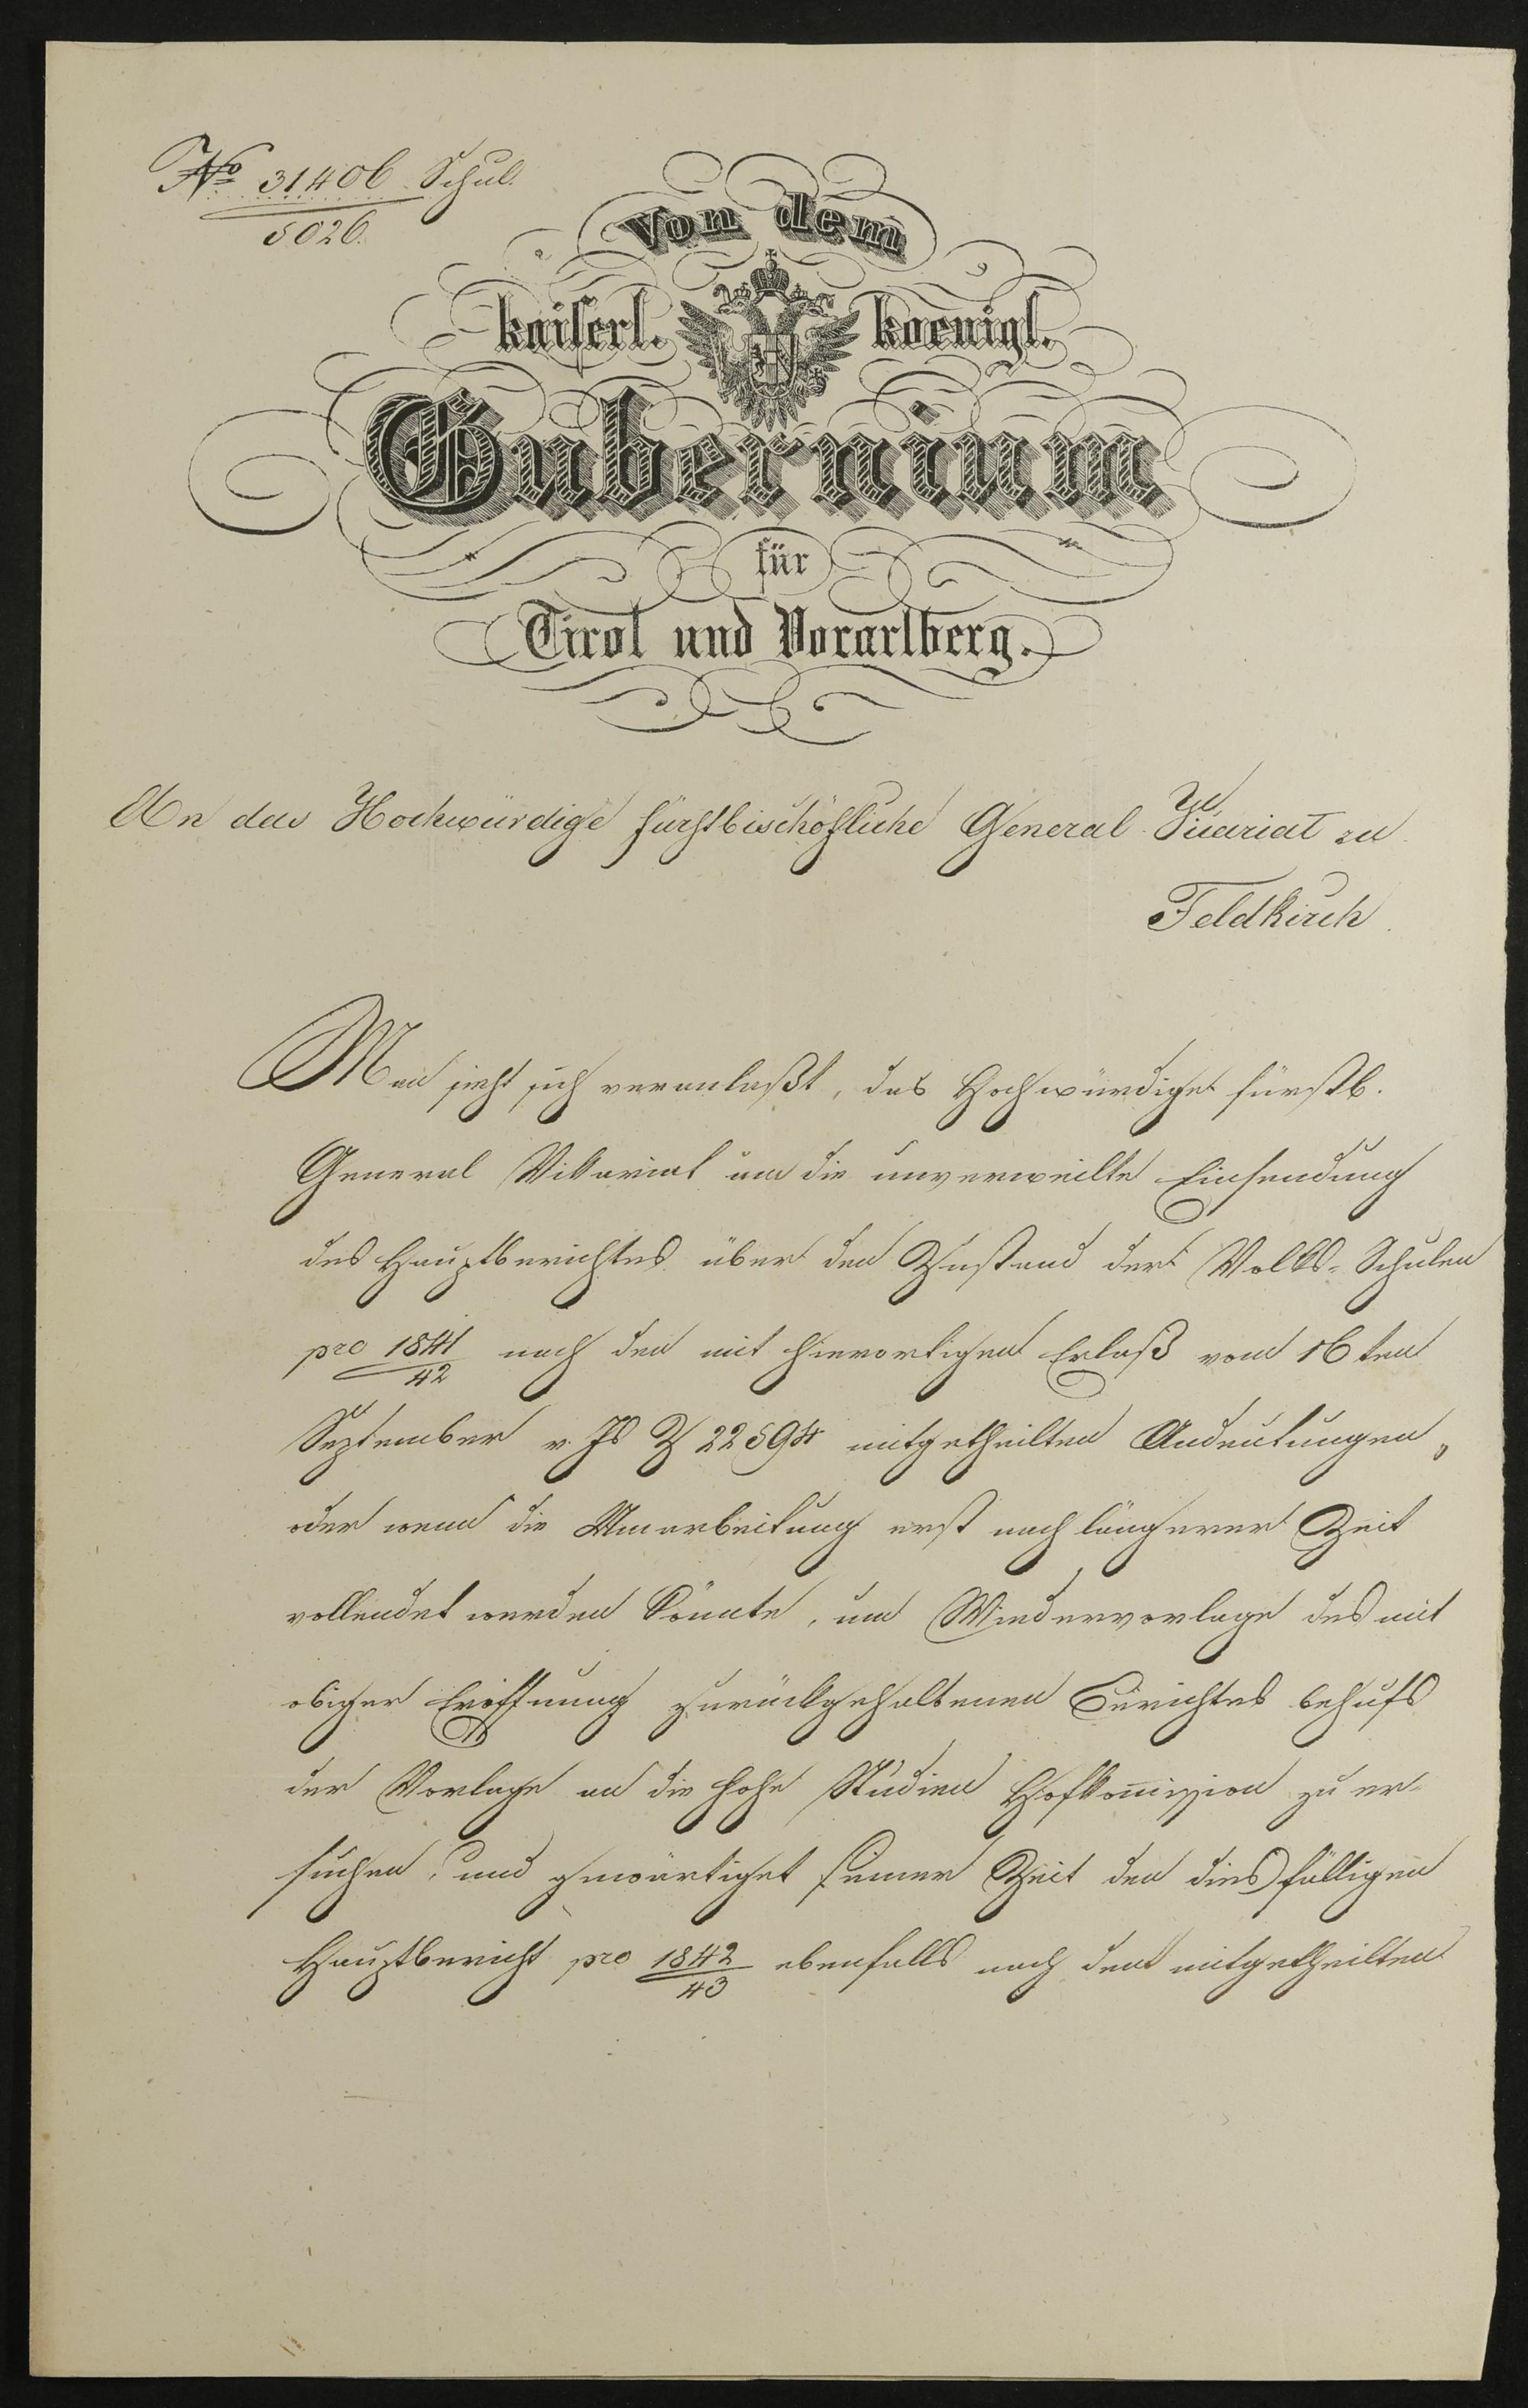 No 31406 Schul.
5026.
Von dem
kaiserl. koenigl.
Gubernium
für
Tirol und Vorarlberg.
An das Hochwürdige fürstbischöfliche General Vicariat zu
Feldkirch.
Man sieht sich veranlaßt, das Hochwürdige fürstb.
General Vikariat um die unverweilte Einsendung
des Hauptberichtes über den Zustand der Volks-Schulen
pro 1841/42 nach den mit hierortigen Erlaß vom 16ten
September v. Js Z 22594 mitgetheilten Andeutungen,
oder wenn die Umarbeitung erst nach längerer Zeit
vollendet werden könnte, um Wiedervorlage des mit
obiger Eröffnung zurückgehaltenen Berichtes behufs
der Vorlage an die hohe Studien Hofkom̅ission zu er-
suchen, und gewärtiget seiner Zeit den diesfälligen
Hauptbericht pro 1842/43 ebenfalls nach den mitgetheilten